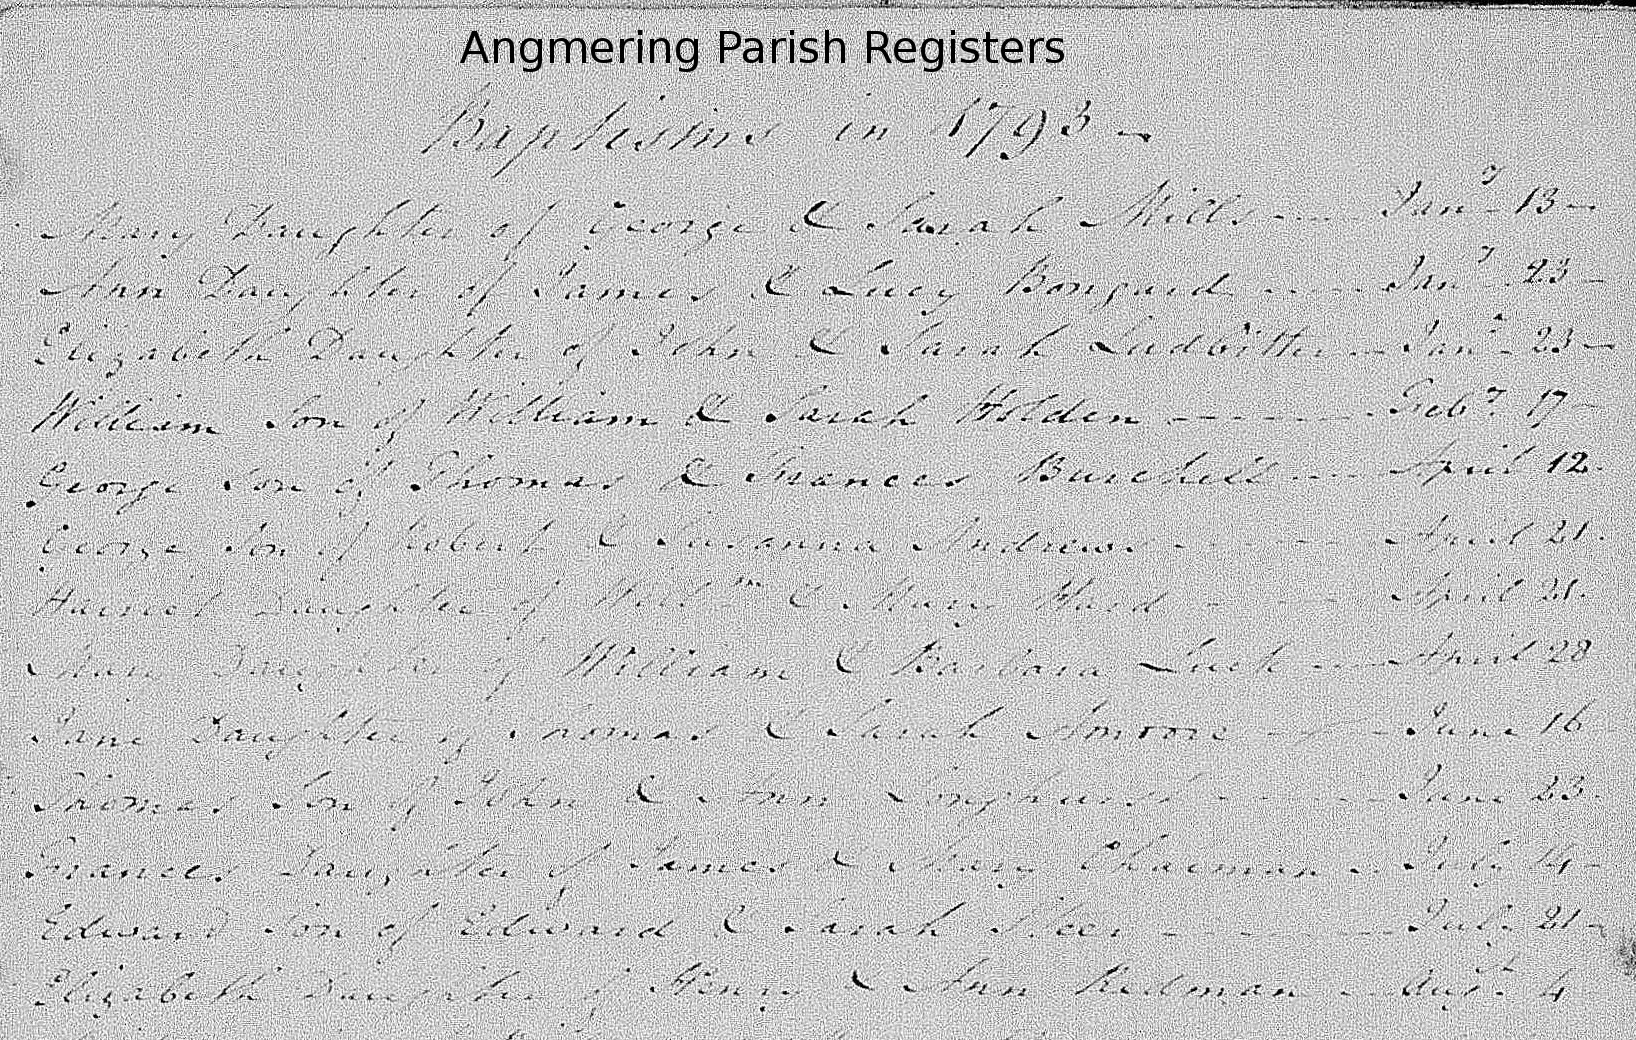 Angmering Parish Registers
Baptisms in 1793
Mary Daughter of George & Sarah Mills Jany 13
Ann Daughter of James & Lucy Bongard Jany 23
Elizabeth Daughter of John & Sarah Ludbitter Jany 23
William Son of William & Sarah Holden Feby 17
George Son of Thomas & Frances Burchell April 12
George Son of Robert & Susanna Andrews April 21
Harriot Daughter of Willm & Mary Ward April 21
Daughter of William & Barbara Luck April 28
Jane Daughter of Thomas & Sarah Amoore June 16
Thomas Son of John & Ann Longhurst June 23
Frances Daughter of James & Mary Chacman July 14
Edward Son of Edward & Sarah Steer July 21
Elizabeth Daughter of Henry & Ann Redman Augt 4